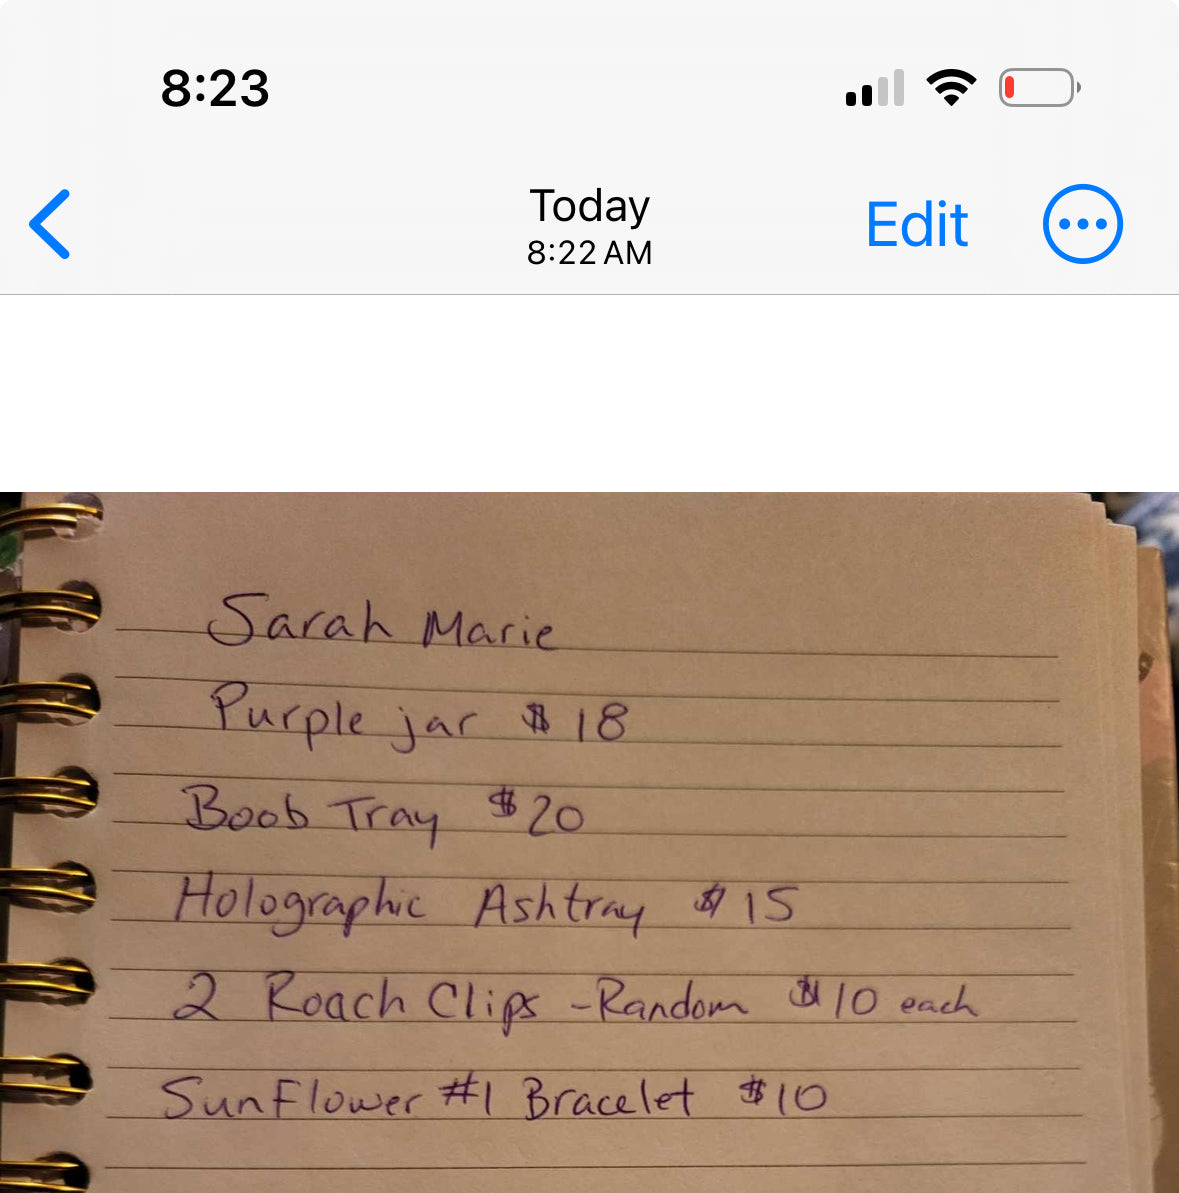 8:23
Today
8:22 AM
Edit
Sarah Marie
Purple jar $18
Boob Tray $20
Holographic Ashtray $15
2 Roach Clips -Random $10 each
Sunflower #1 Bracelet $10